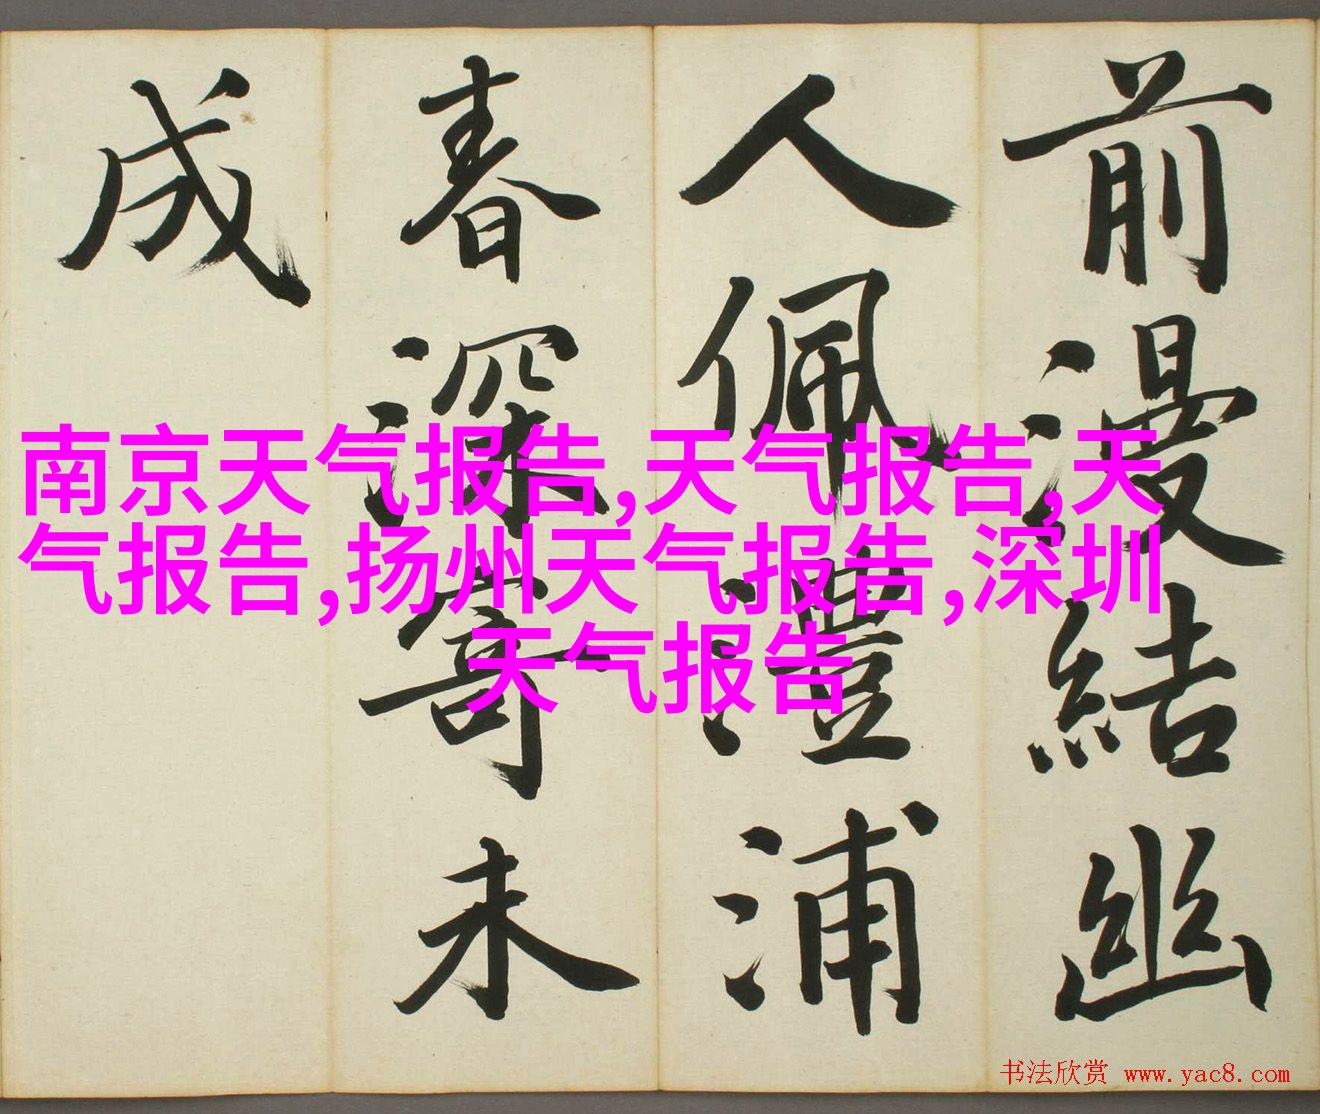 前漫結幽
人佩澧浦
春深寄未
成
南京天气报告,天气报告,天
气报告,扬州天气报告,深圳
天气报告
书法欣赏 www.yac8.com